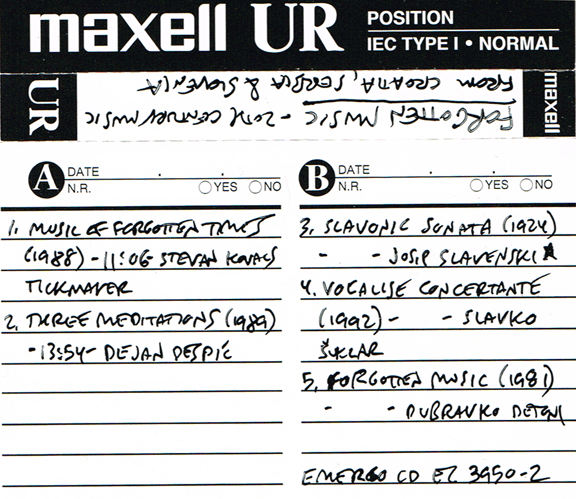 maxell UR POSITION
IEC TYPE I • NORMAL
UR
FORGOTTEN MUSIC - 20TH CENTURY MUSIC
FROM CROATIA, SERBIA & SLOVENIA
maxell
A DATE . .
N.R. YES NO
1. MUSIC OF FORGOTTEN TIMES
(1988) - 11:06 - STEVAN KOVACS
TICKMAYER
2. THREE MEDITATIONS (1989)
- 13:54 - DEJAN DESPIĆ
B DATE . .
N.R. YES NO
3. SLAVONIC SONATA (1924)
- - JOSIP SLAVENSKI
4. VOCALISE CONCERTANTE
(1992) - - SLAVKO
ŠUKLAR
5. FORGOTTEN MUSIC (1981)
- - DUBRAVKO DETONI
EMERGO CD 3950-2